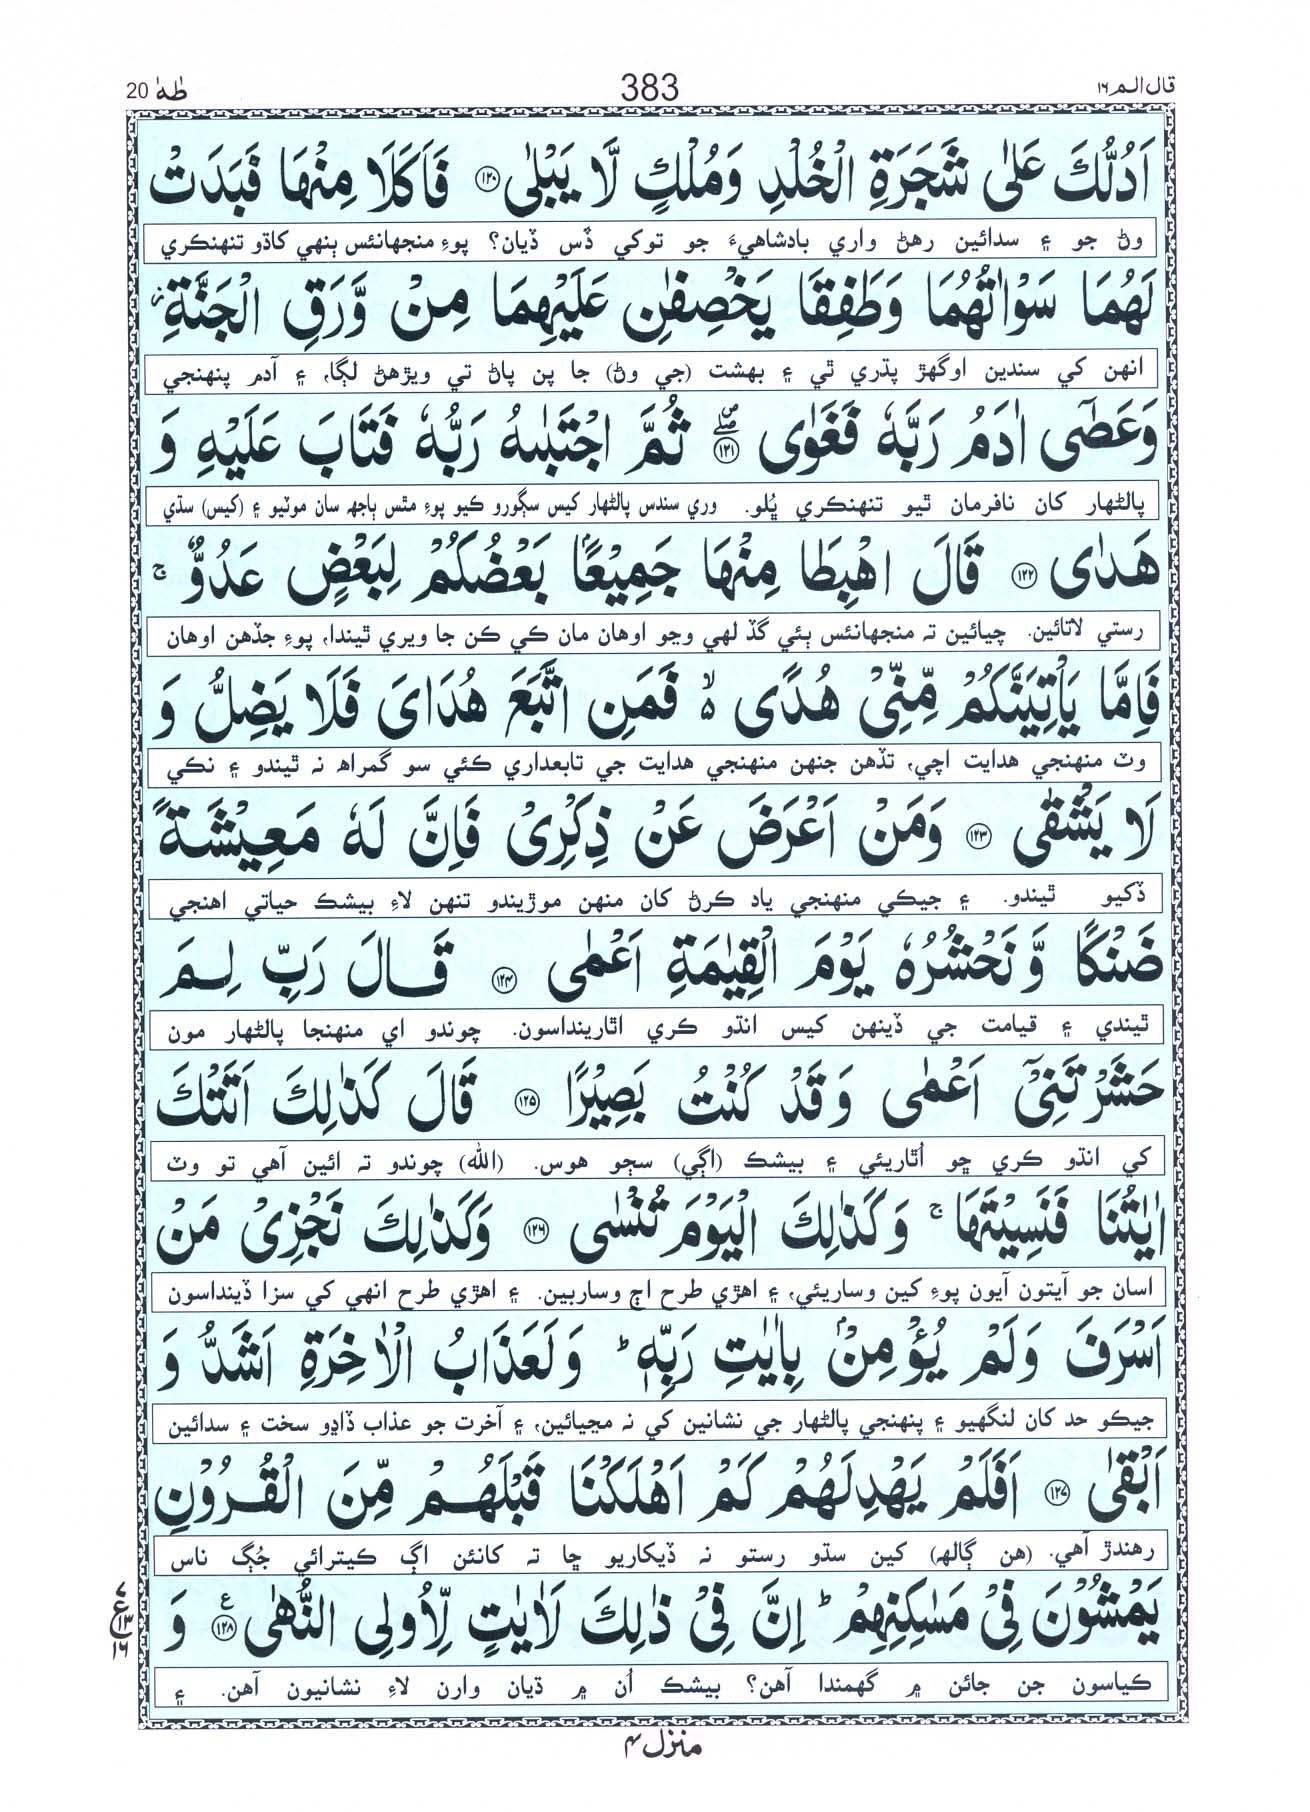 قال الم ١٦ 383 طٰهٰ 20
اَدُلُّكَ عَلٰى شَجَرَةِ الْخُلْدِ وَمُلْكٍ لَّا يَبْلٰى ﴿١٢٠﴾ فَاَكَلَا مِنْهَا فَبَدَتْ
وڻ جو ۽ سدائين رهڻ واري بادشاهيءَ جو توکي ڏس ڏيان؟ پوءِ منجهانئس ٻنهي کاڌو تنهنڪري
لَهُمَا سَوْاٰتُهُمَا وَطَفِقَا يَخْصِفٰنِ عَلَيْهِمَا مِنْ وَّرَقِ الْجَنَّةِ ز
انهن کي سندين اوگهڙ پڌري ٿي ۽ بهشت (جي وڻ) جا پن پاڻ تي ويڙهڻ لڳا، ۽ آدم پنهنجي
وَعَصٰۤى اٰدَمُ رَبَّهٗ فَغَوٰى ﴿١٢١﴾ ثُمَّ اجْتَبٰىهُ رَبُّهٗ فَتَابَ عَلَيْهِ وَ
پالڻهار کان نافرمان ٿيو تنهنڪري ڀُلو. وري سندس پالڻهار کيس سڳورو ڪيو پوءِ مٿس ٻاجهہ سان موٽيو ۽ (کيس) سڌي
هَدٰى ﴿١٢٢﴾ قَالَ اهْبِطَا مِنْهَا جَمِيْعًۢا بَعْضُكُمْ لِبَعْضٍ عَدُوٌّ ج
رستي لاتائين. چيائين تہ منجهانئس ٻئي گڏ لهي وڃو اوهان مان ڪي ڪن جا ويري ٿيندا، پوءِ جڏهن اوهان
فَاِمَّا يَاْتِيَنَّكُمْ مِّنِّىْ هُدًى ۵ۙ فَمَنِ اتَّبَعَ هُدَاىَ فَلَا يَضِلُّ وَ
وٽ منهنجي هدايت اچي، تڏهن جنهن منهنجي هدايت جي تابعداري ڪئي سو گمراھ نہ ٿيندو ۽ نڪي
لَا يَشْقٰى ﴿١٢٣﴾ وَمَنْ اَعْرَضَ عَنْ ذِكْرِىْ فَاِنَّ لَهٗ مَعِيْشَةً
ڏکيو ٿيندو. ۽ جيڪي منهنجي ياد ڪرڻ کان منهن موڙيندو تنهن لاءِ بيشڪ حياتي اهنجي
ضَنْكًا وَّنَحْشُرُهٗ يَوْمَ الْقِيٰمَةِ اَعْمٰى ﴿١٢٤﴾ قَالَ رَبِّ لِمَ
ٿيندي ۽ قيامت جي ڏينهن کيس انڌو ڪري اٿارينداسون. چوندو اي منهنجا پالڻهار مون
حَشَرْتَنِىْۤ اَعْمٰى وَقَدْ كُنْتُ بَصِيْرًا ﴿١٢٥﴾ قَالَ كَذٰلِكَ اَتَتْكَ
کي انڌو ڪري ڇو اُٿاريئي ۽ بيشڪ (اڳي) سڄو هوس. (الله) چوندو تہ ائين آهي تو وٽ
اٰيٰتُنَا فَنَسِيْتَهَا ج وَكَذٰلِكَ الْيَوْمَ تُنْسٰى ﴿١٢٦﴾ وَكَذٰلِكَ نَجْزِىْ مَنْ
اسان جو آيتون آيون پوءِ کين وساريئي، ۽ اهڙي طرح اڄ وساربين. ۽ اهڙي طرح انهي کي سزا ڏينداسون
اَسْرَفَ وَلَمْ يُؤْمِنْۢ بِاٰيٰتِ رَبِّهٖ ؕ وَلَعَذَابُ الْاٰخِرَةِ اَشَدُّ وَ
جيڪو حد کان لنگهيو ۽ پنهنجي پالڻهار جي نشانين کي نہ مڃيائين، ۽ آخرت جو عذاب ڏاڍو سخت ۽ سدائين
اَبْقٰى ﴿١٢٧﴾ اَفَلَمْ يَهْدِ لَهُمْ كَمْ اَهْلَكْنَا قَبْلَهُمْ مِّنَ الْقُرُوْنِ
رهندڙ آهي. (هن ڳالهہ) کين سڌو رستو نہ ڏيکاريو ڇا تہ کانئن اڳ ڪيترائي جُڳ ناس
يَمْشُوْنَ فِىْ مَسٰكِنِهِمْ ؕ اِنَّ فِىْ ذٰلِكَ لَاٰيٰتٍ لِّاُولِى النُّهٰى ﴿١٢٨﴾ ع وَ
٧ ع ١٣ ١٦
ڪياسون جن جائن ۾ گهمندا آهن؟ بيشڪ اُن ۾ ڌيان وارن لاءِ نشانيون آهن. ۽
منزل ٤